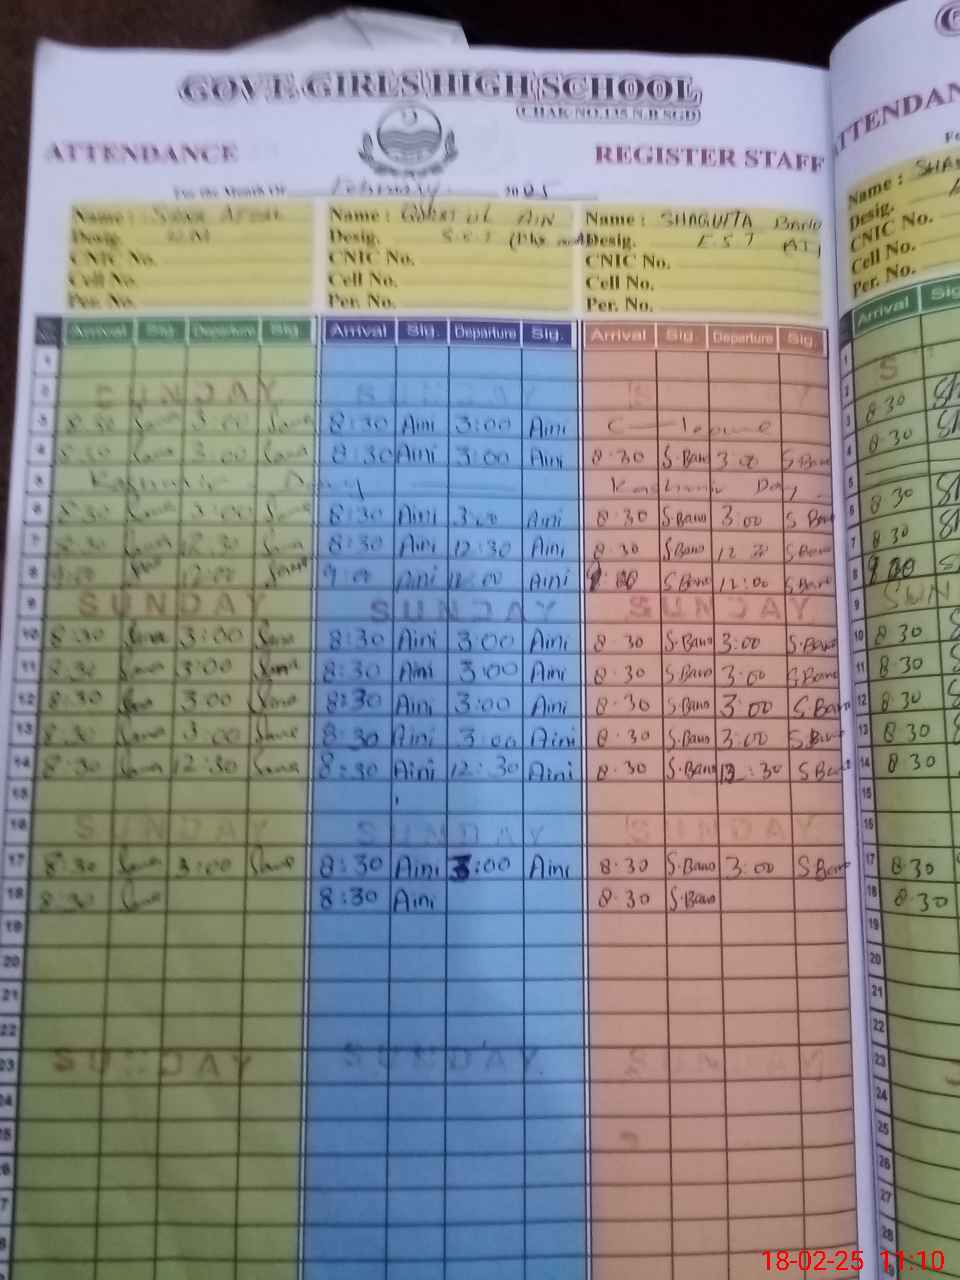 GOVT. GIRLS HIGH SCHOOL
(CHAK NO.135 N.B SGD)
ATTENDANCE REGISTER STAFF ATTENDAN
For the Month Of February 2025
Name : Name : Name : SHAGUFTA Bano Name : SHA
Desig. Desig. S.S.T Desig. E S T Desig.
CNIC No. CNIC No. CNIC No. CNIC No.
Cell No. Cell No. Cell No. Cell No.
Per. No. Per. No. Per. No. Per. No.
Arrival Sig. Departure Sig. Arrival Sig. Departure Sig. Arrival Sig. Departure Sig. Arrival Sig
1 1
2 SUNDAY SUNDAY S 2 S
3 8:30 3:00 8:30 Aini 3:00 Aini C leave 3 8 30
4 8:30 3:00 8:30 Aini 3:00 Aini 8.30 S.Bano 3:00 S.Bano 4 8 30
5 Kashmir Day Kashmir Day 5
6 8:30 3:00 8:30 Aini 3:00 Aini 8.30 S.Bano 3:00 S Bano 6 8 30
7 8:30 12:30 8:30 Aini 12:30 Aini 8.30 S.Bano 12 30 S Bano 7 8 30
8 9:00 12:00 9:00 Aini 12:00 Aini 9:00 S Bano 12:00 S Bano 8 9 00
9 SUNDAY SUNDAY SUNDAY 9 SUN
10 8:30 Sana 3:00 Sana 8:30 Aini 3:00 Aini 8 30 S.Bano 3:00 S.Bano 10 8 30
11 8:30 Sana 3:00 Sana 8:30 Aini 3:00 Aini 8.30 S.Bano 3:00 S.Bano 11 8 30
12 8:30 Sana 3:00 Sana 8:30 Aini 3:00 Aini 8.30 S.Bano 3:00 S.Bano 12 8 30
13 8:30 Sana 3:00 Sana 8:30 Aini 3:00 Aini 8.30 S.Bano 3:00 S.Bano 13 8 30
14 8:30 Sana 12:30 Sana 8:30 Aini 12:30 Aini 8.30 S.Bano 12:30 S Bano 14 8 30
15 15
16 SUNDAY SUNDAY SUNDAY 16
17 8:30 Sana 3:00 Sana 8:30 Aini 3:00 Aini 8.30 S.Bano 3:00 S.Bano 17 8.30
18 8:30 Sana 8:30 Aini 8.30 S.Bano 18 8.30
19 19
20 20
21 21
22 22
23 SUNDAY SUNDAY SUNDAY 23
24 24
25 25
26 26
27 27
28 28
18-02-25 11:10